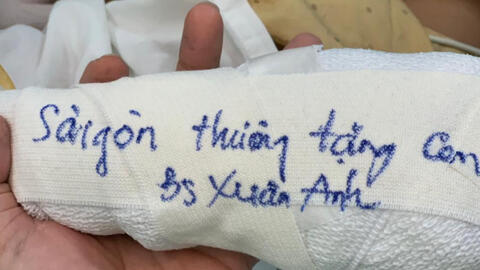 Sàigòn thương tặng con
BS Xuân Anh